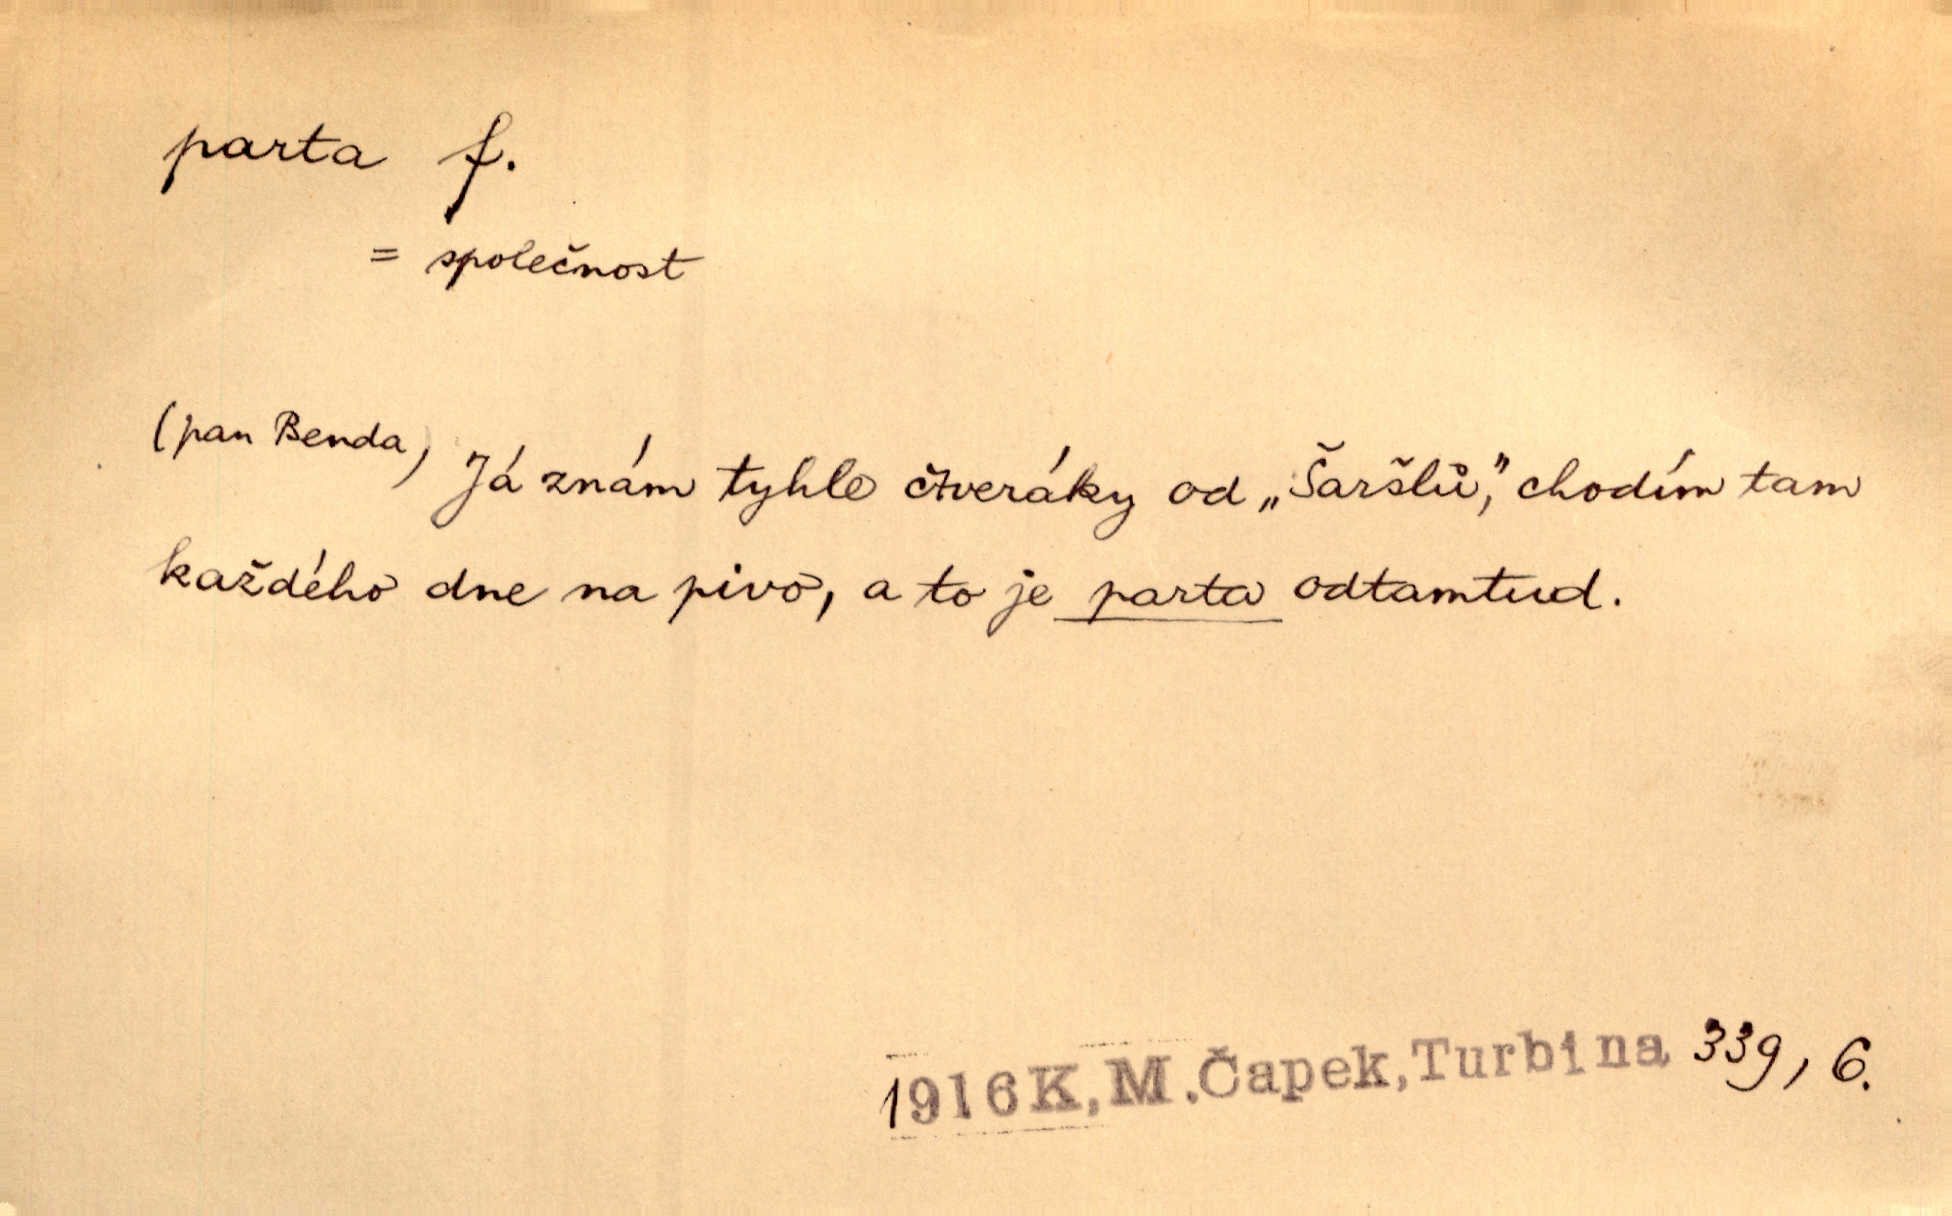 parta f.
= společnost
(pan Benda) Já znám tyhle čtveráky od „Šaršlů,” chodím tam
každého dne na pivo, a to je parta odtamtud.
1916 K, M. Čapek, Turbina 339, 6.